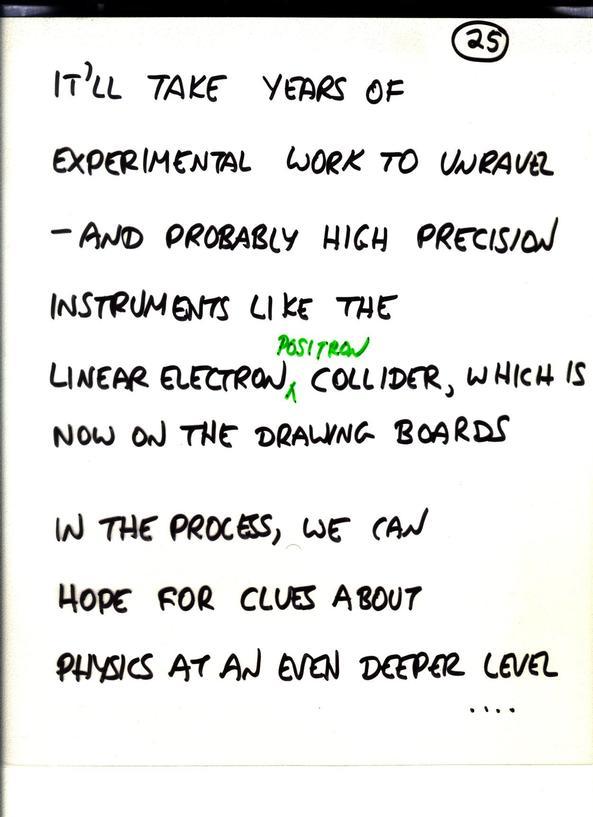 25
IT'LL TAKE YEARS OF
EXPERIMENTAL WORK TO UNRAVEL
– AND PROBABLY HIGH PRECISION
INSTRUMENTS LIKE THE
POSITRON
LINEAR ELECTRON, COLLIDER, WHICH IS
NOW ON THE DRAWING BOARDS
IN THE PROCESS, WE CAN
HOPE FOR CLUES ABOUT
PHYSICS AT AN EVEN DEEPER LEVEL
....